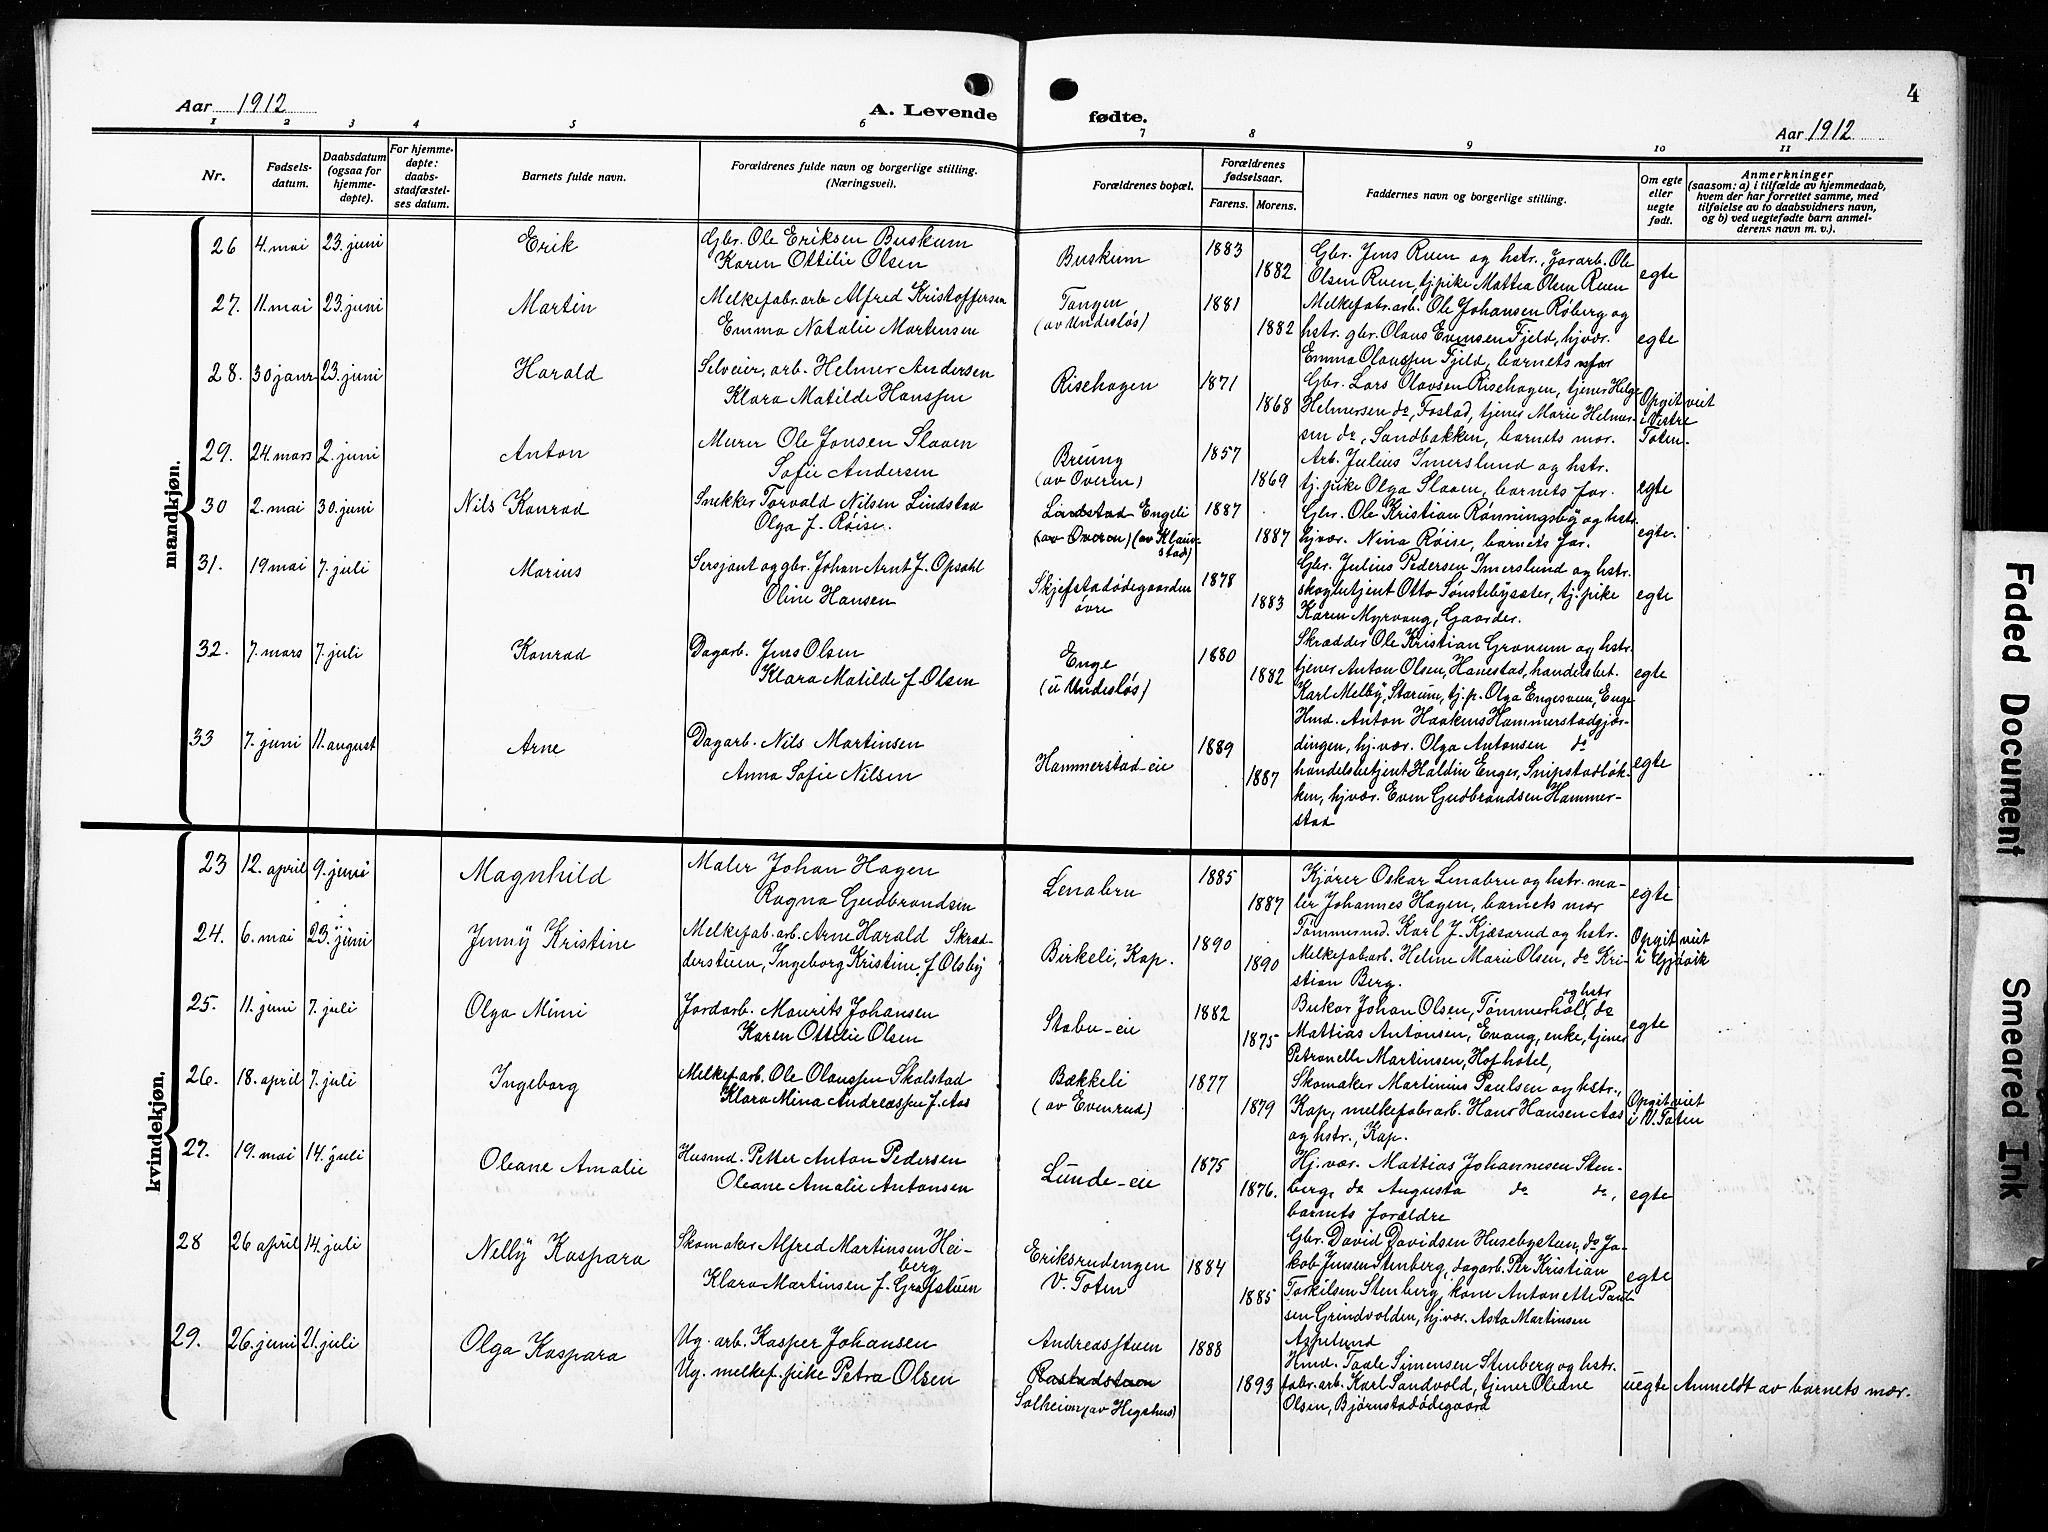 4
Aar 1912
A. Levende fødte.
Aar 1912
1 2 3 4 5 6 7 8 9 10 11
Nr.
Fødsels-
datum.
Daabsdatum
(ogsaa for
hjemme-
døpte).
For hjemme-
døpte:
daabs-
stadfæstel-
ses datum.
Barnets fulde navn.
Forældrenes fulde navn og borgerlige stilling.
(Næringsvei).
Forældrenes bopæl.
Forældrenes
fødselsaar.
Farens. Morens.
Faddernes navn og borgerlige stilling.
Om egte
eller
uegte
født.
Anmerkninger
(saasom: a) i tilfælde av hjemmedaab,
hvem der har forrettet samme, med
tilføielse av to daabsvidners navn,
og b) ved uegtefødte barn anmel-
derens navn m. v.).
mandkjøn.
26 4. mai 23. juni Erik
Gbr. Ole Eriksen Buskum
Karen Ottilie Olsen
Buskum
1883
1882
Gbr. Jens Ruen og hstr., jorarb. Ole
Olsen Ruen, tj.pike Mattea Olsen Ruen
egte
27. 11. mai 23. juni Martin
Melkefabr.arb Alfred Kristoffersen
Emma Natalie Martinsen
Tangen
(av Undesløs)
1881
1882
Melkefab.arb. Ole Johansen Røberg og
hstr. gbr. Olaus Evensen Fjeld, hj.vær.
Emma Olaussen Fjeld, barnets far
egte
28. 30 janr 23. juni Harald
Selveier, arb. Helmer Andersen
Klara Matilde Hanssen
Risehagen
1871
1868
Gbr. Lars Olavsen Risehagen, tjener Helge
Helmersen do, Fostad, tjener Marie Helmer-
sen do, Sandbakken, barnets mor.
Opgit viet
i Vestre
Toten.
29. 24. mars 2. juni Anton
Murer Ole Jonsen Slaaen
Sofie Andersen
Breung
(av Overen)
1857
1869
Arb. Julius Imerslund og hstr.
tj.pike Olga Slaaen, barnets far.
egte
30 2. mai 30. juni Nils Konrad
Snekker Torvald Nilsen Lindstad
Olga f. Røise.
Lindstad Engeli
(av Overen) (av Klauv-
stad)
1887
1887
Gbr. Ole Kristian Rønningsby og hstr.
hj.vær. Nina Røise, barnets far.
egte.
31. 19 mai 7. juli Marius
Sersjant og gbr. Johan Arnt J. Opsahl
Oline Hansen
Skjefstadødegaarden
øvre
1878
1883
Gbr. Julius Pedersen Imerslund og hstr.
skogbetjent Otto Sønstebysæter, tj.pike
Karen Myrvang, Gaarder.
egte
32. 7. mars 7. juli Konrad
Dagarb. Jens Olsen
Klara Matilde f. Olsen
Enge
(u Undesløs)
1880
1882
Skrædder Ole Kristian Granum og hstr.
tjener Anton Olsen, Hanestad, handelsbet.
Karl Melby, Starum, tj.p. Olga Engesveen, Enge
egte
33 7. juni 11. august Arne
Dagarb. Nils Martinsen
Anna Sofie Nilsen
Hammerstad-eie
1889
1887
Hmd. Anton Haakens Hammerstadgjær-
dingen, hj.vær. Olga Antonsen do
handelsbetjent Haldin Enger, Snipstadløk-
ken, hj.vær. Even Gudbrandsen Hammer-
stad
egte
kvindekjøn.
23 12. april 9. juni Magnhild
Maler Johan Hagen
Ragna Gudbrandsen
Lenabru
1885
1887
Kjører Oskar Lenabru og hstr. ma-
ler Johannes Hagen, barnets mor
egte
24. 6. mai 23. juni Jenny Kristine
Melkefab.arb. Arne Harald Skræd-
derstuen, Ingeborg Kristine f. Olsby
Birkeli, Kap.
1890
1890
Tømmermd. Karl J. Kjæsarud og hstr.
Melkefab.arb. Helene Marie Olsen, do Kri-
stian Berg.
Opgit viet
i Gjøvik
25. 11. juni 7. juli Olga Mimi
Jordarb. Maurits Johansen
Karen Ottilie Olsen
Stabu-eie
1882
1875
og hstr
Buker Johan Olsen, Tømmerhol, do
Mattias Antonsen, Evang, enke, tjener
Petronelle Martinsen, Hof hotel,
egte
26. 18. april 7. juli Ingeborg
Melkef.arb. Ole Olaussen Skolstad
Klara Mina Andreassen f. Aas
Bækkeli
(av Evenrud)
1877
1879
Skomaker Martinius Paulsen og hstr.,
Kap, melkefabr.arb. Hans Hansen Aas
og hstr., Kap.
Opgit viet
i V. Toten
27. 19. mai 14. juli Oleane Amalie
Husmd. Petter Anton Pedersen
Oleane Amalie Antonsen
Lunde-eie
1875
1876.
Hj.vær. Mattias Johannesen Sten-
berg, do Augusta do do,
barnets forældre
egte
28 26 april 14. juli Nelly Kaspara
Skomaker Alfred Martinsen Hei-
berg
Klara Martinsen f. Grafstuen
Eriksrudengen
V. Toten
1884
1885
Gbr. David Davidsen Husebystuen, do Ja-
kob Jensen Stenberg, dagarb. Per Kristian
Torkilsen Stenberg, kone Antonette Paul-
sen Grindvolden, hj.vær. Asta Martinsen
Aspelund
egte
29. 26. juni 21. juli Olga Kaspara
Ug. arb. Kasper Johansen
Ug. melkef.pike Petra Olsen
Andreasstuen
Rastadstuen
Solheim (av Hegshus)
1888
1893
Hmd. Taale Simensen Stenberg og hstr.
fabr.arb. Karl Sandvold, tjener Oleane
Olsen, Bjørnstadødegaard
uegte
Anmeldt av barnets mor.
Faded Document
Smeared Ink